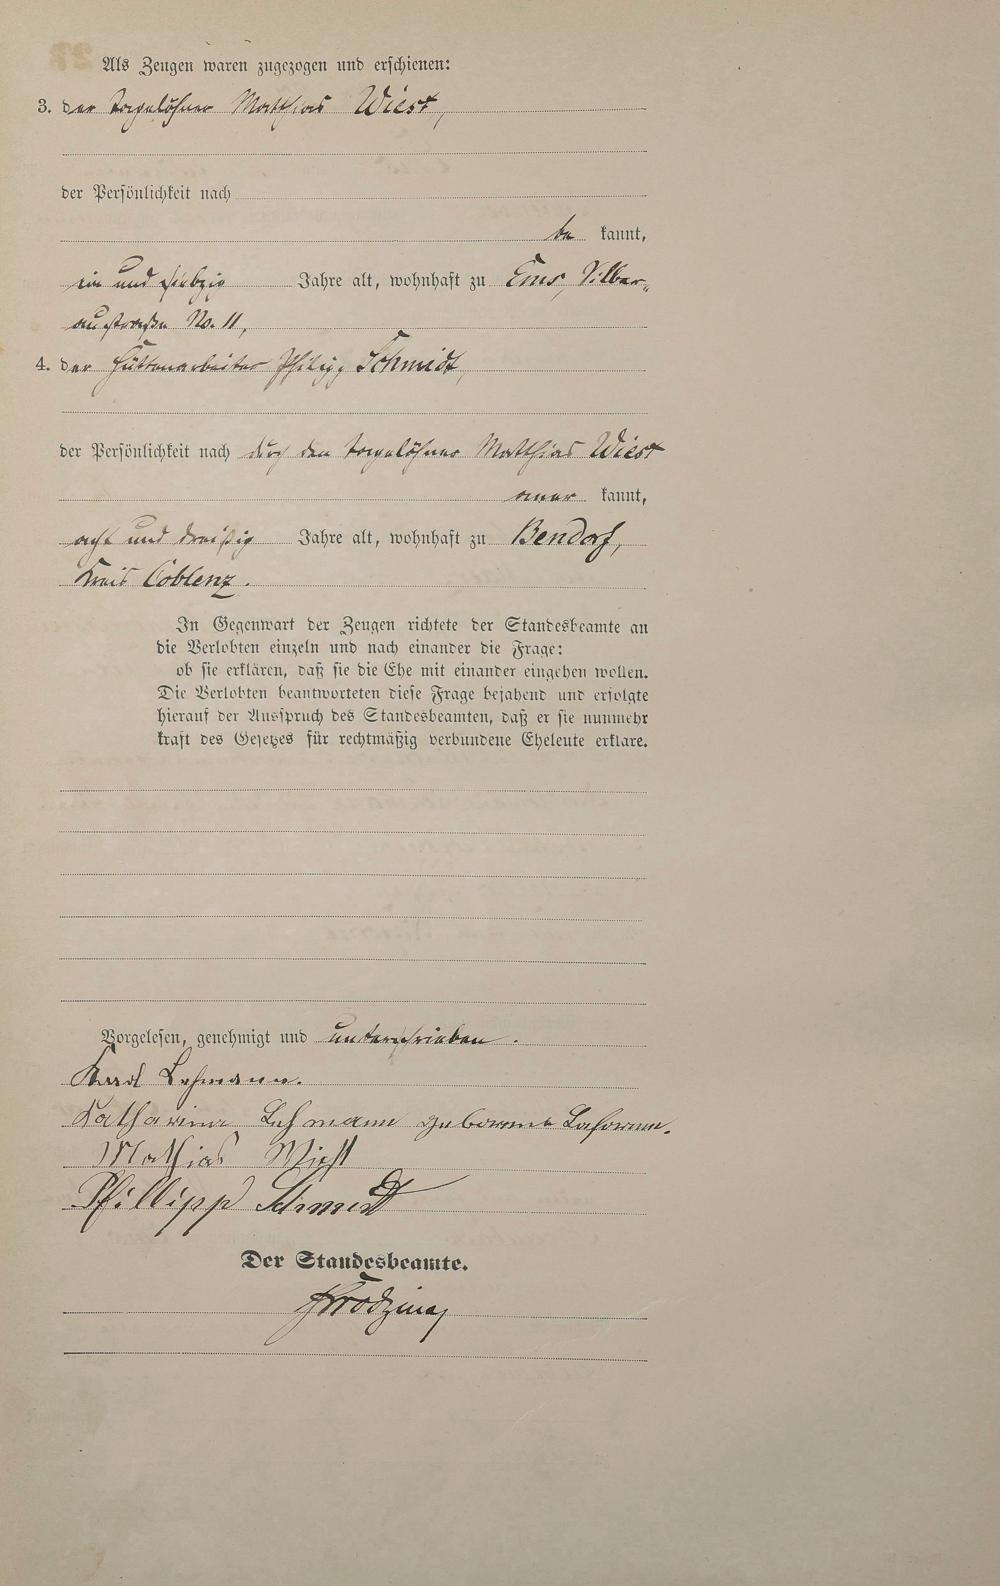 Als Zeugen waren zugezogen und erschienen:
3. der Tagelöhner Matthias Wiest,
der Persönlichkeit nach
be kannt,
ein und siebzig Jahre alt, wohnhaft zu Ems, Silber-
austraße No. 11,
4. der Hüttenarbeiter Philipp Schmidt,
der Persönlichkeit nach durch den Tagelöhner Matthias Wiest
aner kannt,
acht und dreißig Jahre alt, wohnhaft zu Bendorf,
Kreis Coblenz.
In Gegenwart der Zeugen richtete der Standesbeamte an
die Verlobten einzeln und nach einander die Frage:
ob sie erklären, daß sie die Ehe mit einander eingehen wollen.
Die Verlobten beantworteten diese Frage bejahend und erfolgte
hierauf der Ausspruch des Standesbeamten, daß er sie nunmehr
kraft des Gesetzes für rechtmäßig verbundene Eheleute erkläre.
Vorgelesen, genehmigt und unterschrieben.
Karl Lehmann.
Katharina Lehmann geborene
Mathias Wiest
Phillipp Schmidt
Der Standesbeamte.